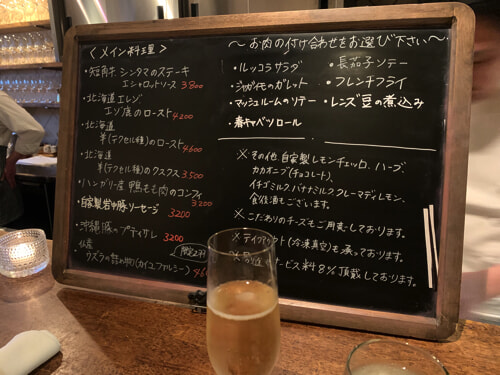 〈メイン料理〉
・短角牛 シンタマのステーキ
エシャロットソース 3800
・北海道 エレゾ
エゾ鹿のロースト 4200
・北海道
羊(テクセル種)のロースト 4600
・北海道
羊(テクセル種)のクスクス 3,500
・ハンガリー産 鴨もも肉のコンフィ
3200
・自家製岩中豚ソーセージ
3200
・沖縄豚のプティサレ 3200
仏産
ウズラの詰め物(カイユファルシー)
〜お肉の付け合わせをお選び下さい〜
・ルッコラサラダ
・長茄子ソテー
・ジャガイモのガレット
・フレンチフライ
・マッシュルームのソテー
・レンズ豆の煮込み
・春キャベツロール
※その他、自家製レモンチェッロ、ハーブ、
カカオニブ(チョコレート)、
イチゴミルク、バナナミルク、クレーマディレモン、
食後酒もございます。
※こだわりのチーズもご用意しております。
※テイクアウト(冷凍真空)も承っております。
サービス料8%頂戴しております。